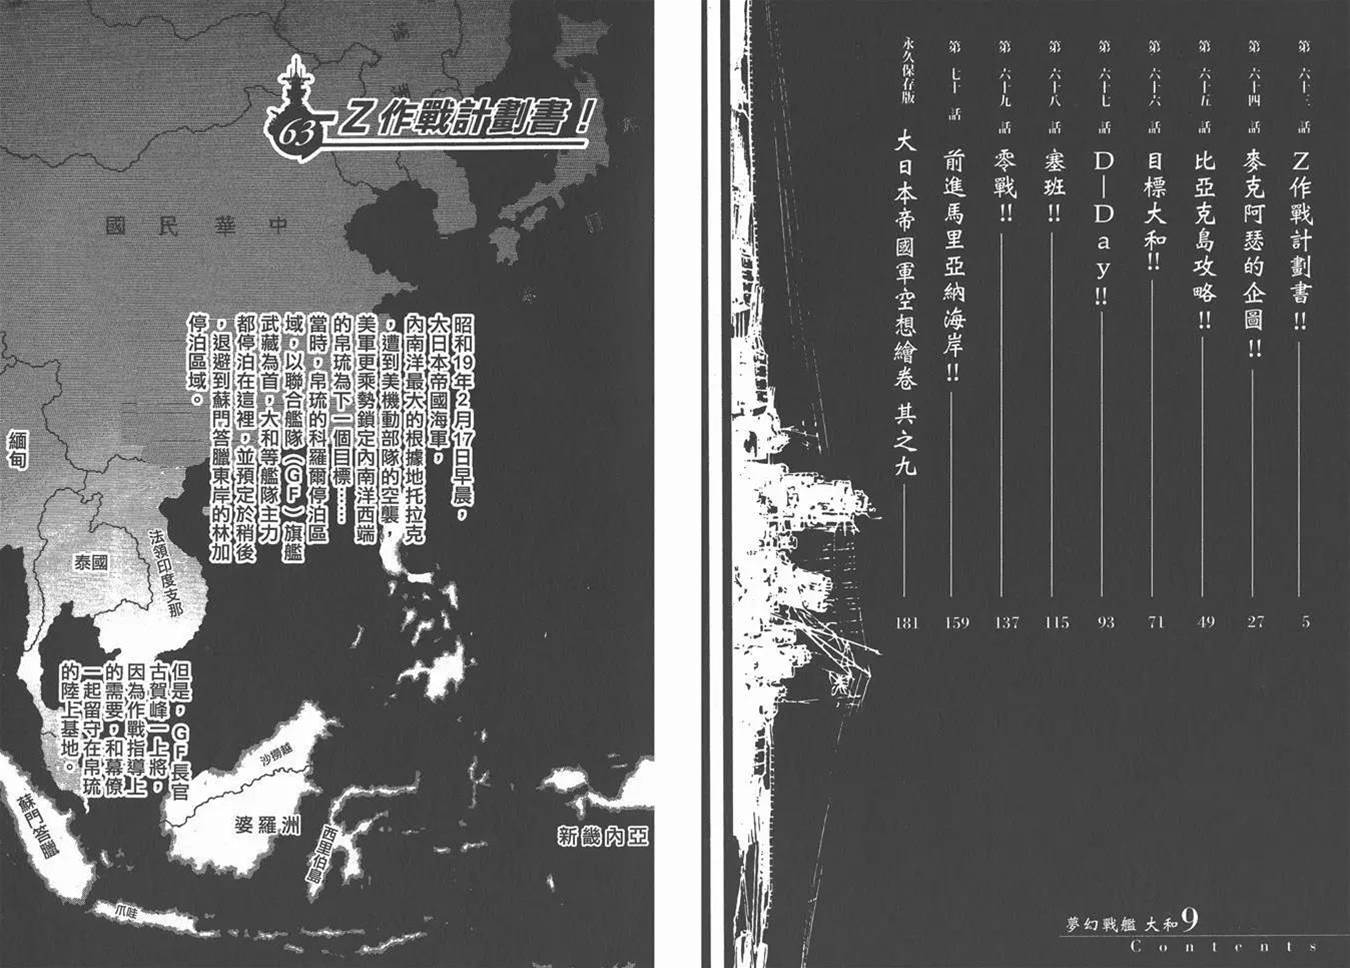 第六十三話 Z作戰計劃書!! 5
第六十四話 麥克阿瑟的企圖!! 27
第六十五話 比亞克島攻略!! 49
第六十六話 目標大和!! 71
第六十七話 D—Day!! 93
第六十八話 塞班!! 115
第六十九話 零戰!! 137
第七十話 前進馬里亞納海岸!! 159
永久保存版 大日本帝國軍空想繪卷 其之九 181
夢幻戰艦 大和9
Contents
63 Z作戰計劃書!
昭和19年2月17日早晨,
大日本帝國海軍,
內南洋最大的根據地托拉克
,遭到美機動部隊的空襲,
美軍更乘勢鎖定內南洋西端
的帛琉為下一個目標……
當時,帛琉的科羅爾停泊區
域,以聯合艦隊(GF)旗艦
武藏為首,大和等艦隊主力
都停泊在這裡,並預定於稍後
,退避到蘇門答臘東岸的林加
停泊區域。
但是,GF長官
古賀峰一上將,
因為作戰指導上
的需要,和幕僚
一起留守在帛琉
的陸上基地。
中華民國
滿
緬甸
泰國
法領印度支那
沙撈越
婆羅洲
西里伯島
新畿內亞
蘇門答臘
爪哇